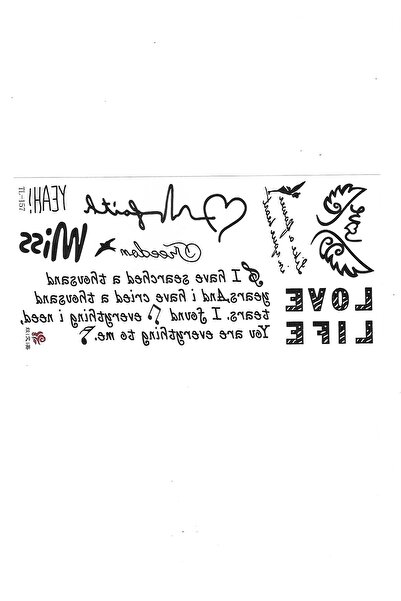 faith
YEAH!
TL-157
Miss
Freedom
I have searched a thousand
years,And i have cried a thousand
tears. I found everything i need,
You are everything to me.
LOVE
LIFE